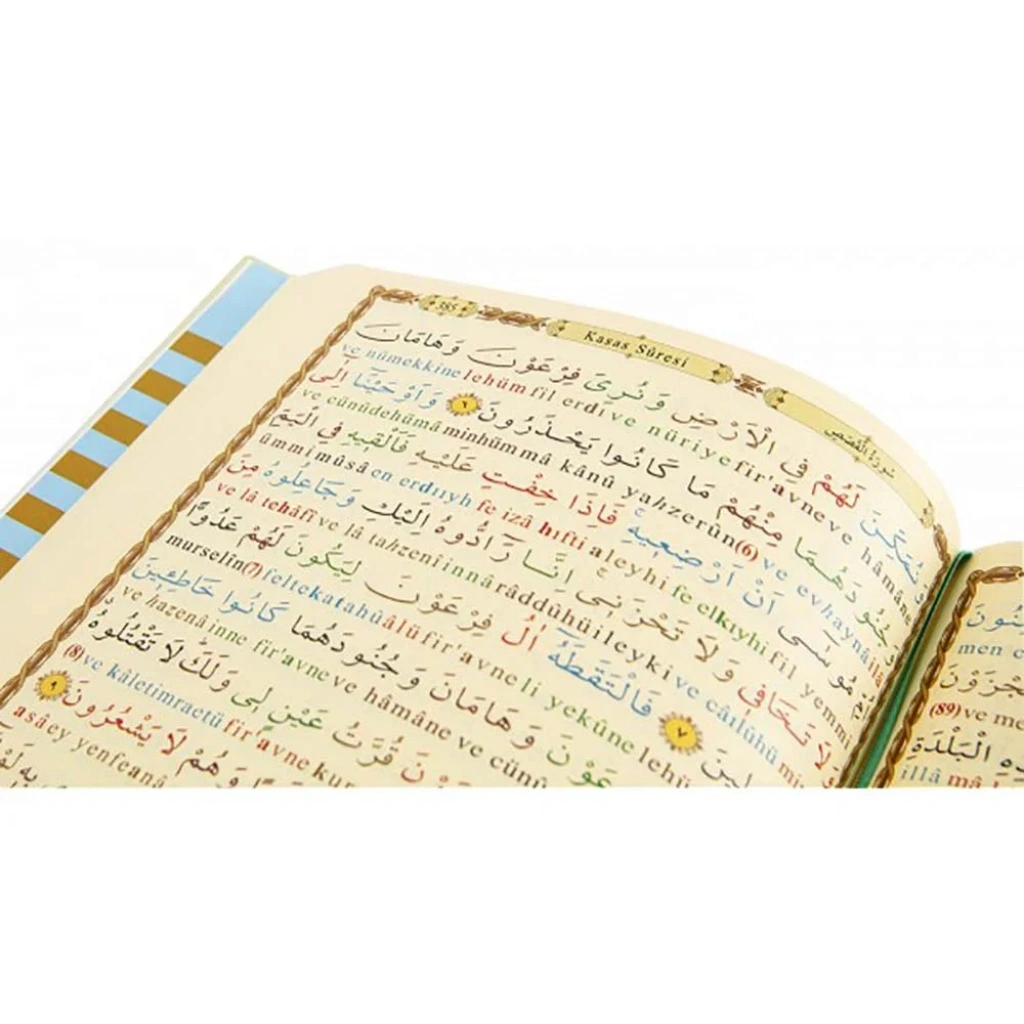 385
Kasas Sûresi
سورة القصص
وَنُمَكِّنَ لَهُمْ فِي الْاَرْضِ وَنُرِيَ فِرْعَوْنَ وَهَامَانَ
ve nümekkine lehüm fil erdı ve nüriye fir'avne ve hâmâne
وَجُنُودَهُمَا مِنْهُمْ مَا كَانُوا يَحْذَرُونَ ٦ وَاَوْحَيْنَٓا اِلٰٓى
ve cünûdehümâ minhüm mâ kânû yahzerûn(6) ve evhaynâ ilâ
اُمِّ مُوسٰٓى اَنْ اَرْضِعِيهِ فَاِذَا خِفْتِ عَلَيْهِ فَاَلْقِيهِ فِي الْيَمِّ
ümmi mûsâ en erdııyh fe izâ hıfti aleyhi fe elkıyhi fil yemmi
وَلَا تَخَافِي وَلَا تَحْزَنِي اِنَّا رَٓادُّوهُ اِلَيْكِ وَجَاعِلُوهُ مِنَ
ve lâ tehâfî ve lâ tahzenî innâ râddûhü ileyki ve câılûhü min
لِينَ ٧ فَالْتَقَطَهُٓ اٰلُ فِرْعَوْنَ لِيَكُونَ لَهُمْ عَدُوًّا
murselîn(7) feltekatahû âlü fir'avne li yekûne lehü
عَوْنَ وَهَامَانَ وَجُنُودَهُمَا كَانُوا خَاطِـِٔينَ
ve hazenâ inne fir'avne ve hâmâne ve cünû
نَ قُرَّتُ عَيْنٍ لِي وَلَكَ لَا تَقْتُلُوهُ
(8)ve kâletimraetü fir'avne kur
وَهُمْ لَا يَشْعُرُونَ ٩
asâ ey yenfeanâ
men
(89)ve me
الْبَلْدَةِ
illâ mâ